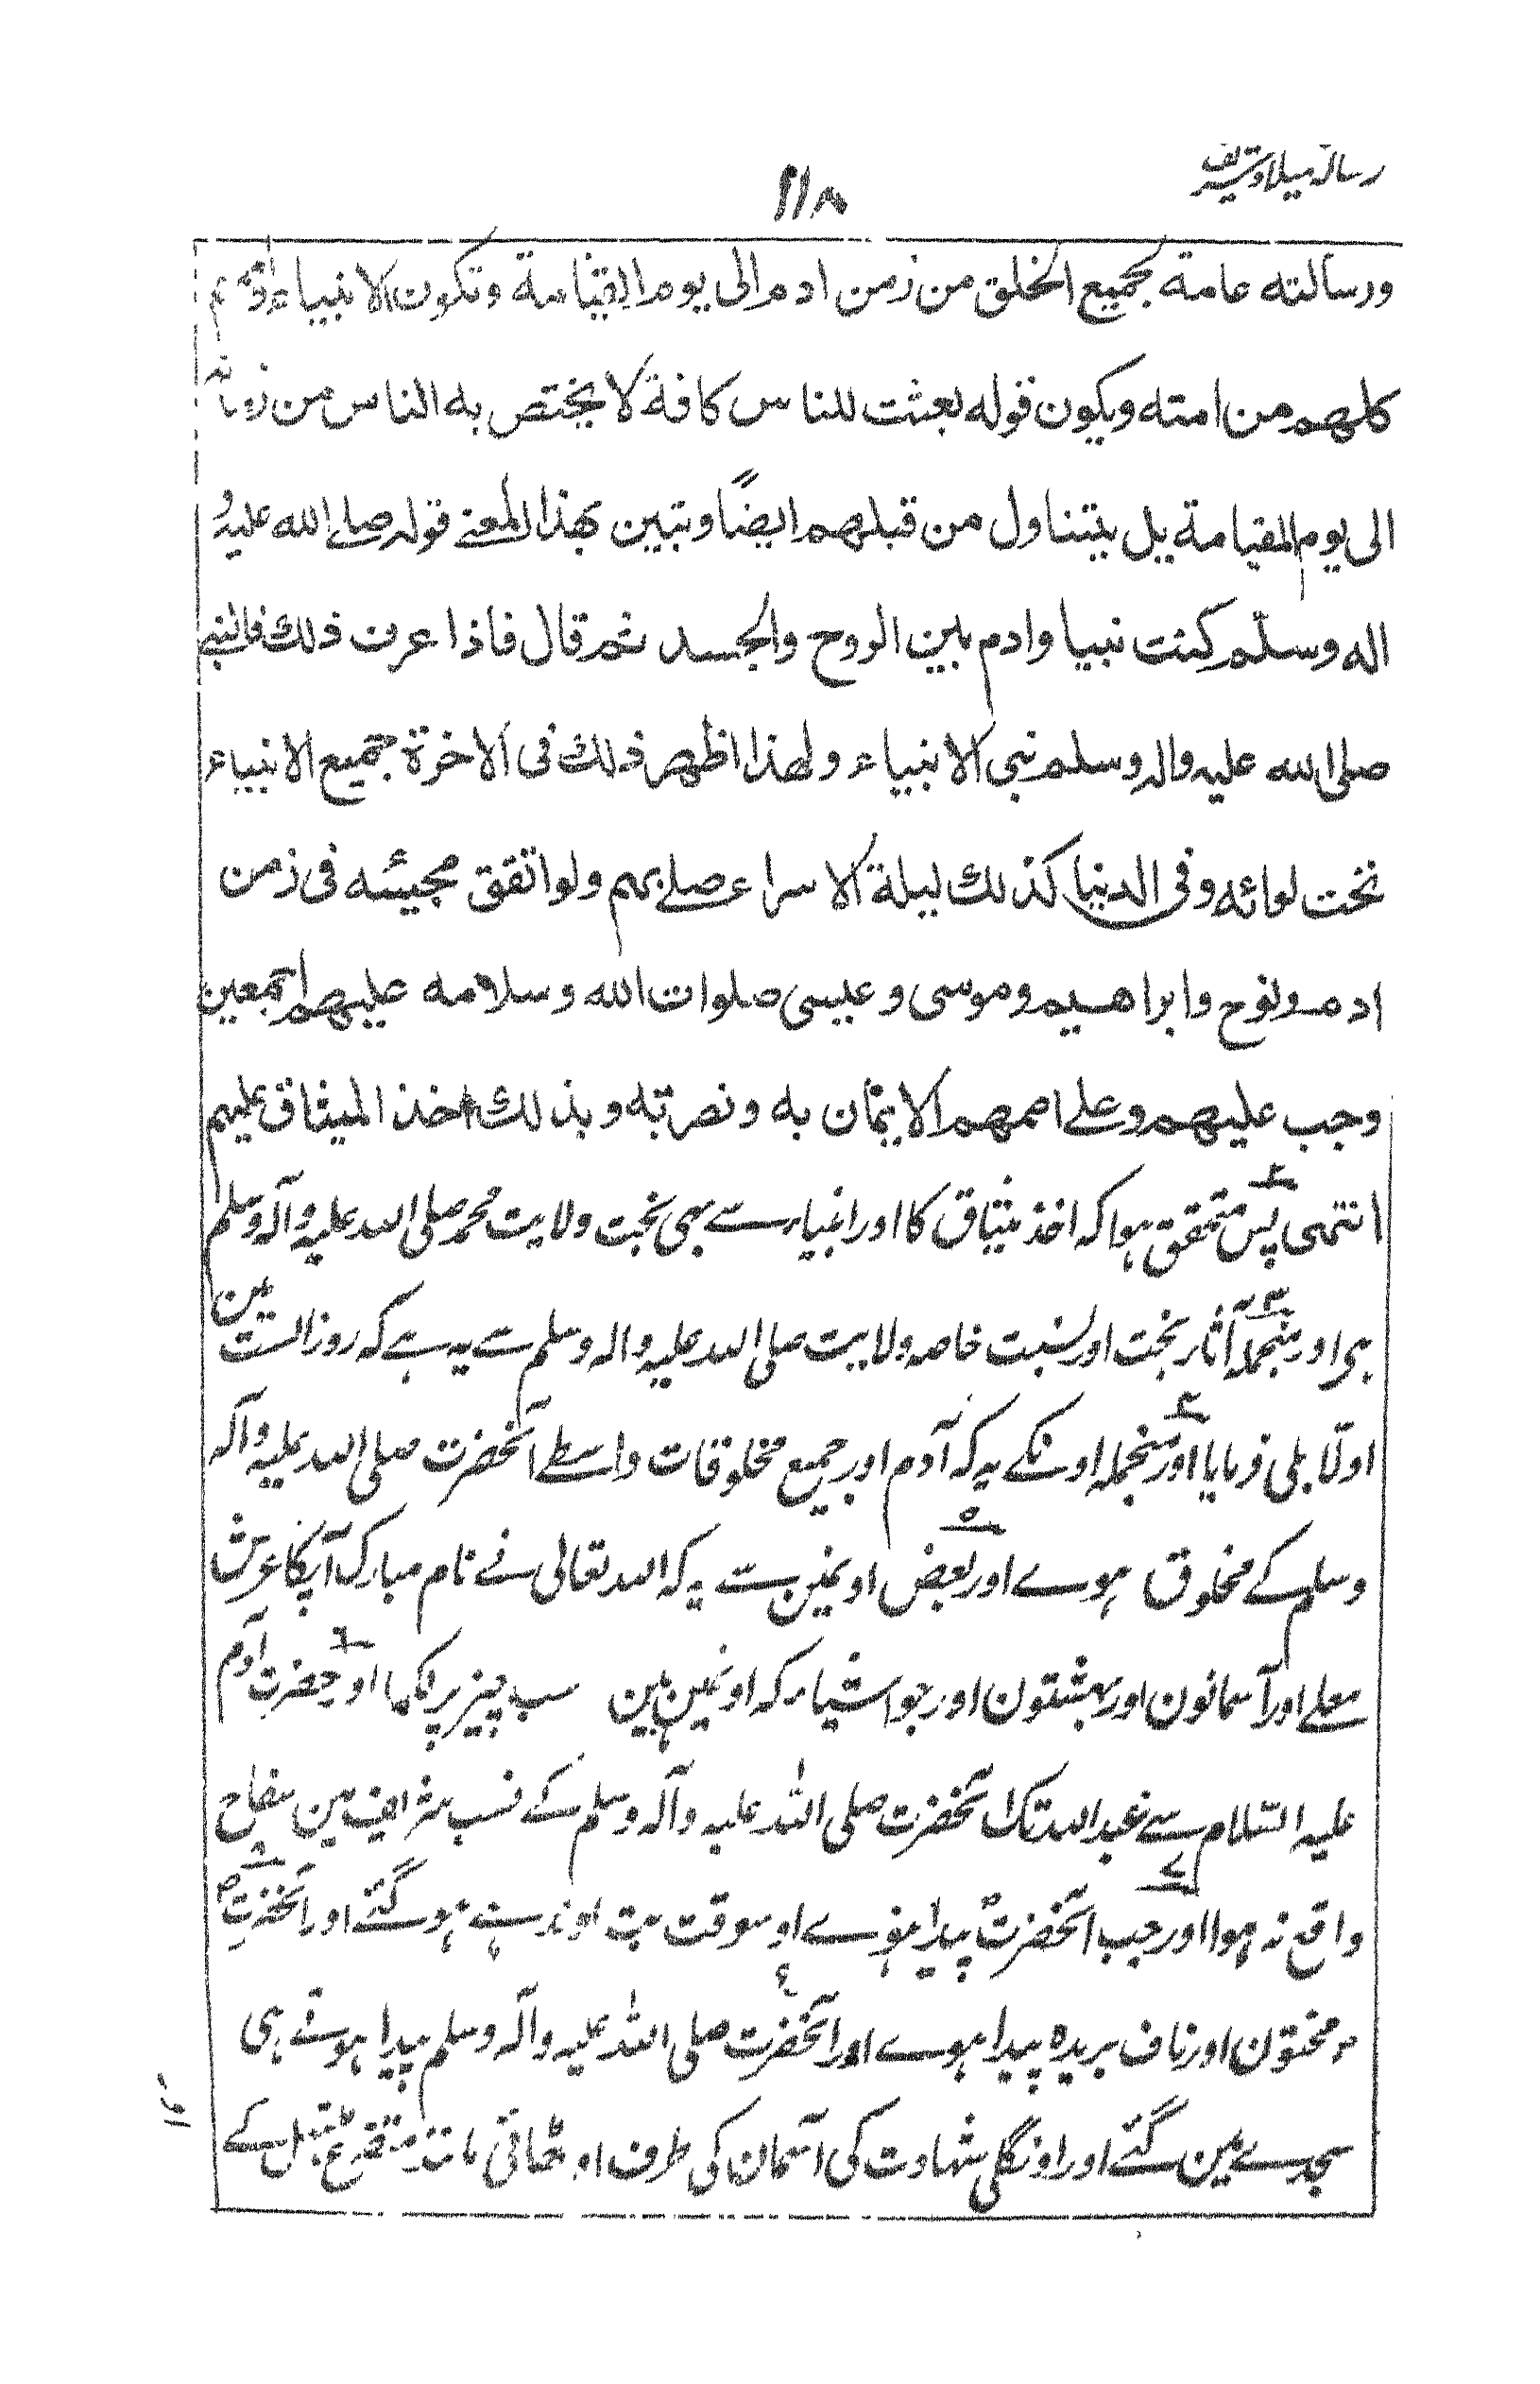 رسالہ میلاد شریف
۱۱۸
ورسالته عامة لجميع الخلق من زمن ادم الى يوم القيامة وتكون الانبياء وامم
كلهم من امته ويكون قوله بعثت للناس كافة لا يختص به الناس من زمانه
الى يوم القيامة بل يتناول من قبلهم ايضًا وتبين بهذا المعنے قوله صلے الله عليه و
اله وسلّم كنت نبيا وادم بين الروح والجسد ثم قال فاذا عرف ذلك فالنبي
صلى الله عليه واله وسلم نبي الانبياء ولهذا اظهر ذلك في الاخرة جميع الانبياء
تحت لوائه وفى الدنيا كذلك ليلة الاسراء صلے بهم ولو اتفق مجيئه فى زمن
ادم ونوح وابراهيم وموسى وعيسى صلوات الله وسلامه عليهم اجمعين
وجب عليهم وعلے اممهم الايمان به ونصرته وبذلك اخذ الميثاق عليهم
انتہی پس متحقق ہوا کہ اخذ میثاق کا اور انبیاء سے بھی بجہت ولایت محمد صلی اللہ علیہ وآلہ وسلم
ہی اور منجملہ آثار بجہت اور نسبت خاصہ ولایت صلی اللہ علیہ والہ وسلم سے یہ ہے کہ روز الست مین
اولًا بلی فرمایا اور منجملہ اونکے یہ کہ آدم اور جمیع مخلوقات واسطے آنحضرت صلی اللہ علیہ وآلہ
وسلم کے مخلوق ہوے اور بعض اونمین سے یہ کہ اللہ تعالی نے نام مبارک آپکا عرش
معلے اور آسمانون اور بہشتون اور جو اشیاء کہ اونمین ہین سب چیز پر لکھا اور حضرت آدم
علیہ السّلام سے عبداللہ تک آنحضرت صلی اللہ علیہ وآلہ وسلم کے نسب شریف مین سفاح
واقع نہ ہوا اور جب آنحضرت پیدا ہوے اوسوقت بت اوندہے ہوگئے اور آنحضرت ص
مختون اور ناف بریدہ پیدا ہوے اور آنحضرت صلی اللہ علیہ وآلہ وسلم پیدا ہوتے ہی
سجدے مین گئے اور اونگلی شہادت کی آسمان کی طرف اوٹھائی مانند متضرع کے